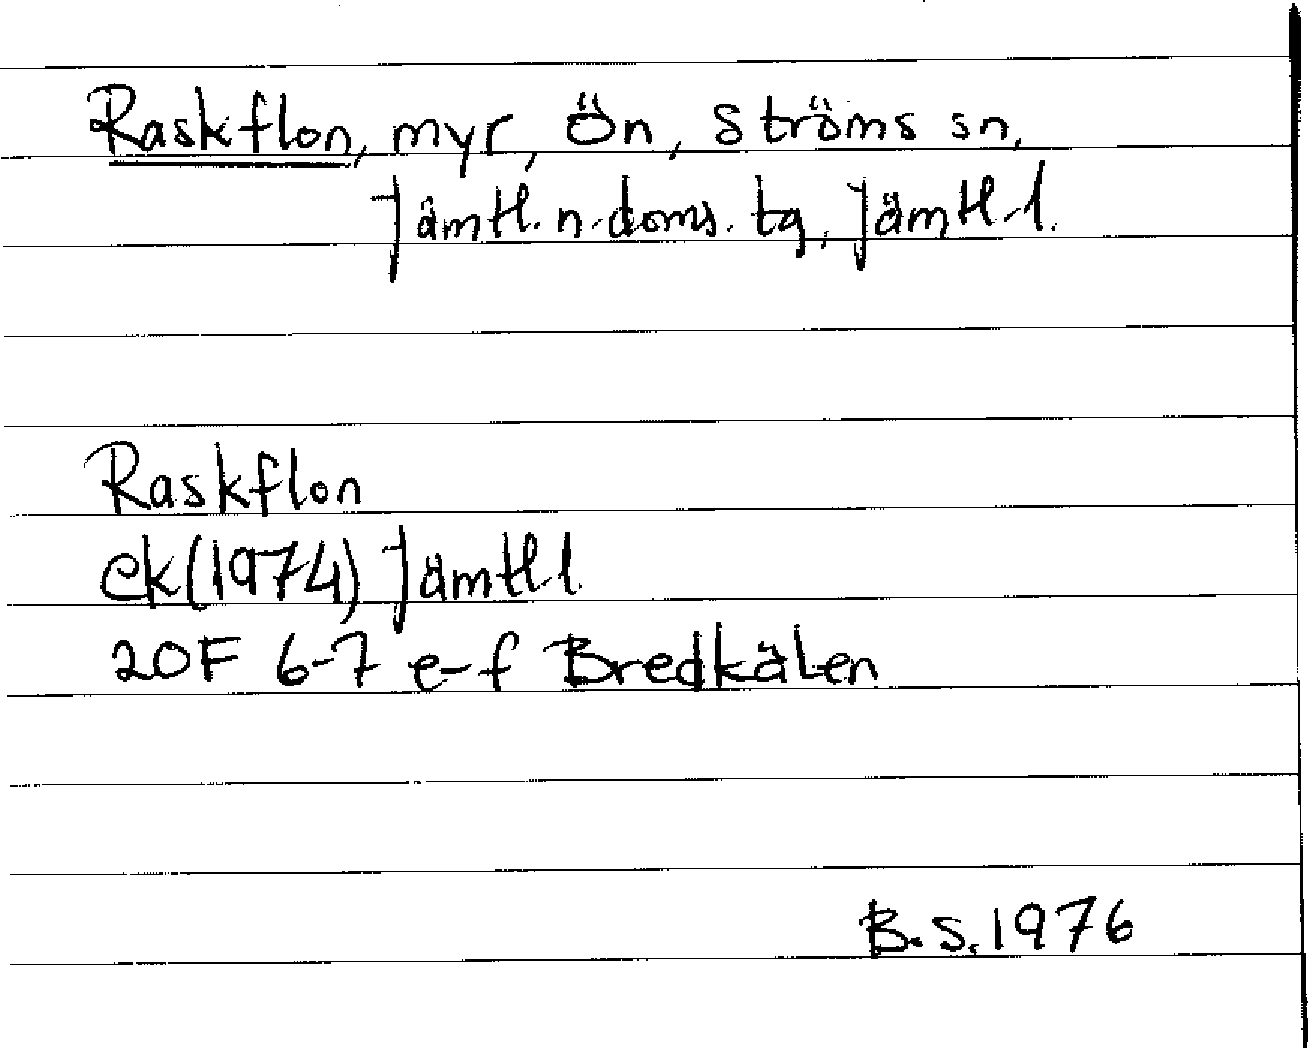 Raskflon, myr, Ön, Ströms sn,
Jämtl. n. doms. tg, Jämtl. l.
Raskflon
ek (1974) Jämtl l
20F 6-7 e-f Bredkälen
B.S. 1976